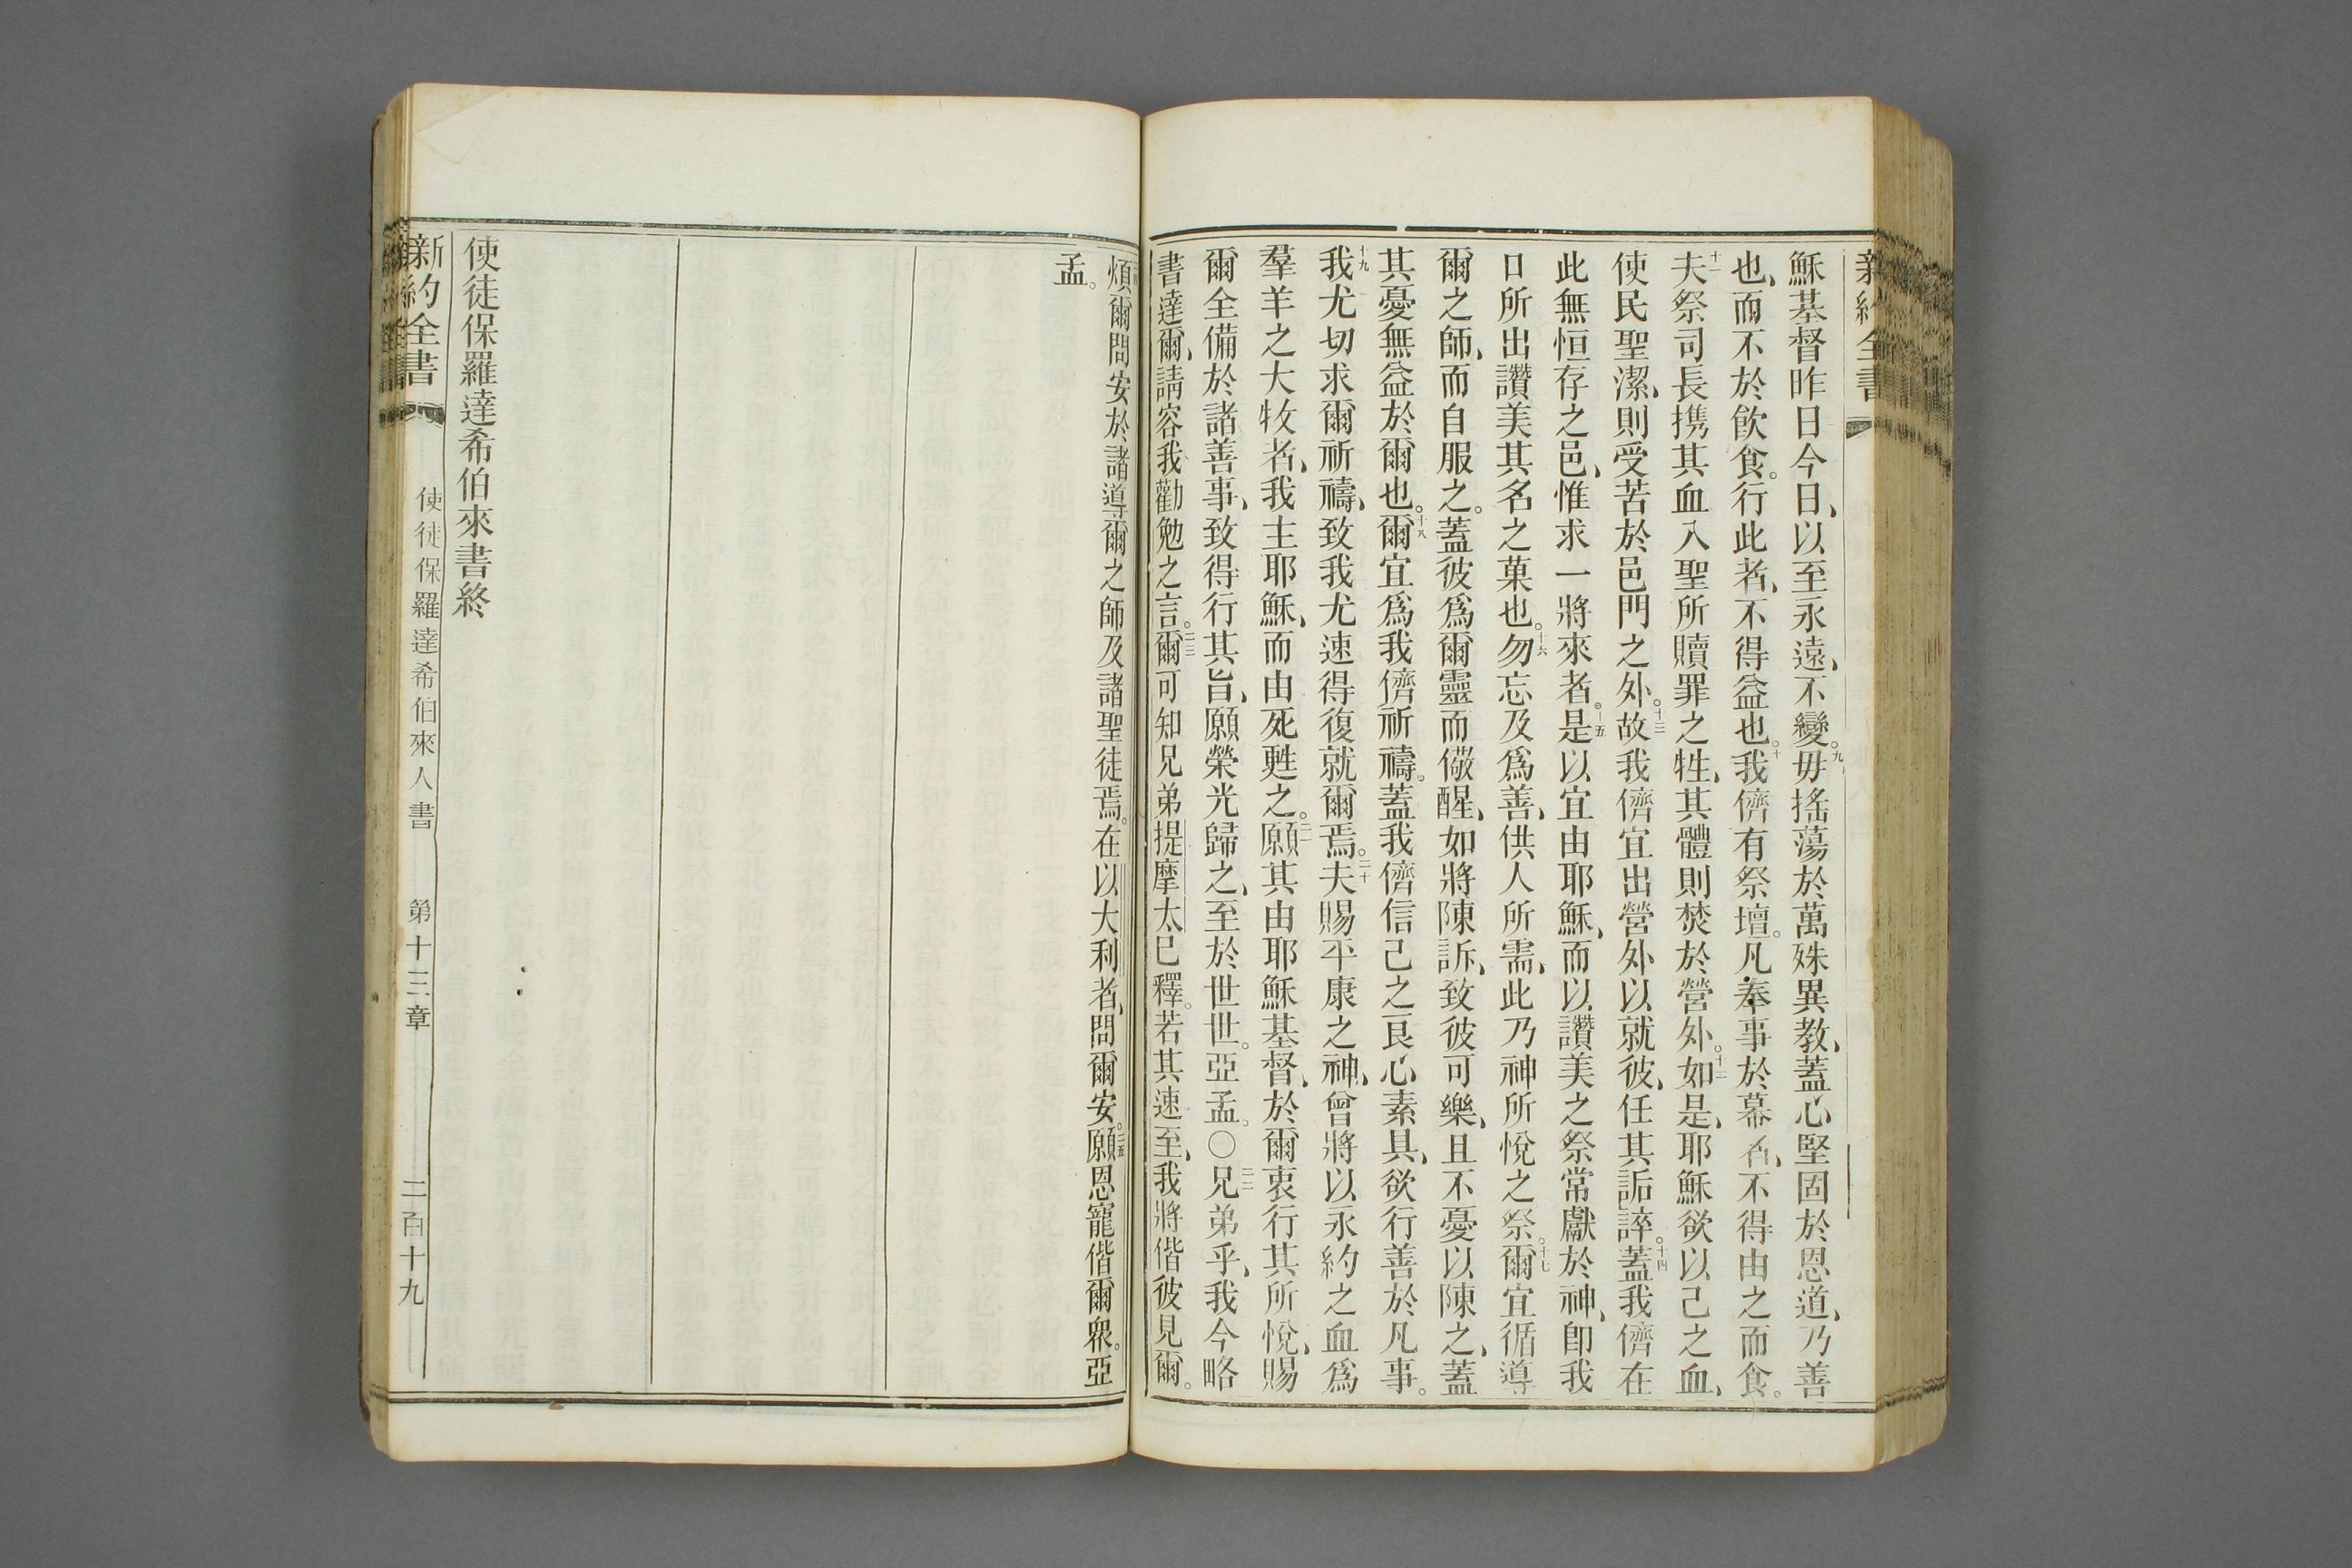 新約全書
穌基督昨日今日、以至永遠、不變。九毋搖蕩於萬殊異教、蓋心堅固於恩道、乃善
也、而不於飲食。行此者、不得益也。十我儕有祭壇。凡奉事於幕者、不得由之而食。
十一夫祭司長携其血入聖所贖罪之牲、其體則焚於營外。十二如是、耶穌欲以己之血、
使民聖潔、則受苦於邑門之外。十三故我儕宜出營外以就彼、任其詬誶。十四蓋我儕在
此無恒存之邑、惟求一將來者。十五是以宜由耶穌、而以讚美之祭常獻於神、卽我
口所出讚美其名之菓也。十六勿忘及爲善、供人所需、此乃神所悅之祭。十七爾宜循導
爾之師、而自服之。蓋彼爲爾靈而儆醒、如將陳訴、致彼可樂、且不憂以陳之、蓋
其憂無益於爾也。十八爾宜爲我儕祈禱。蓋我儕信己之良心素具、欲行善於凡事。
十九我尤切求爾祈禱、致我尤速得復就爾焉。二十夫賜平康之神、曾將以永約之血爲
羣羊之大牧者、我主耶穌、而由死甦之。二一願其由耶穌基督、於爾衷行其所悅、賜
爾全備於諸善事、致得行其旨、願榮光歸之、至於世世。亞孟。○二二兄弟乎、我今略
書達爾、請容我勸勉之言。二三爾可知兄弟提摩太已釋。若其速至、我將偕彼見爾。
煩爾問安於諸導爾之師及諸聖徒焉。在以大利者、問爾安。二五願恩寵偕爾衆。亞
孟。
使徒保羅達希伯來書終
新約全書 使徒保羅達希伯來人書 第十三章 二百十九